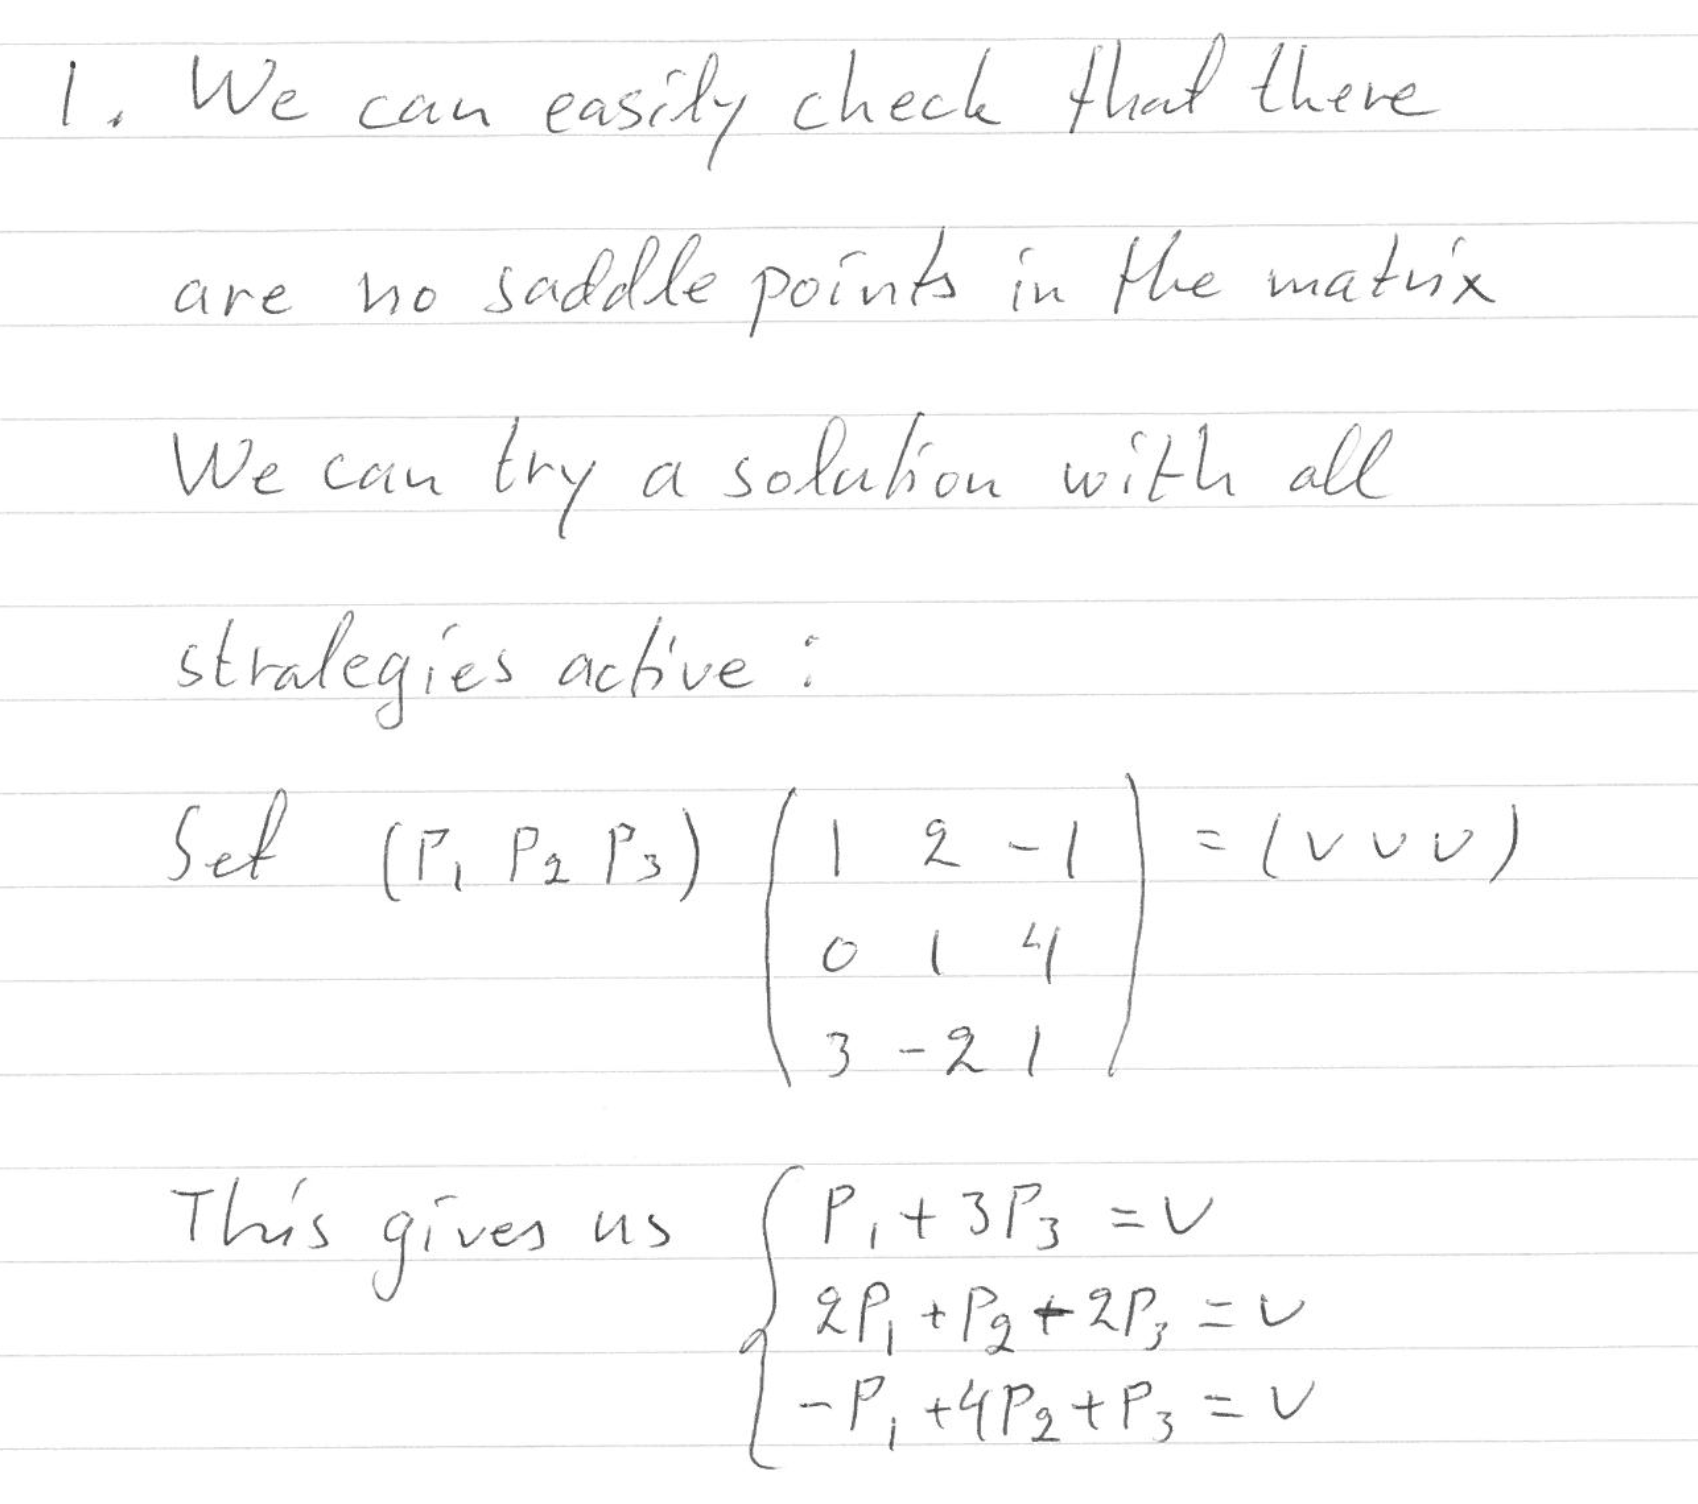 1. We can easily check that there
are no saddle points in the matrix
We can try a solution with all
strategies active:
Set (P₁ P₂ P₃) ( 1 2 -1 ) = (v v v)
0 1 4
3 -2 1
This gives us { P₁ + 3P₃ = v
2P₁ + P₂ + 2P₃ = v
-P₁ + 4P₂ + P₃ = v